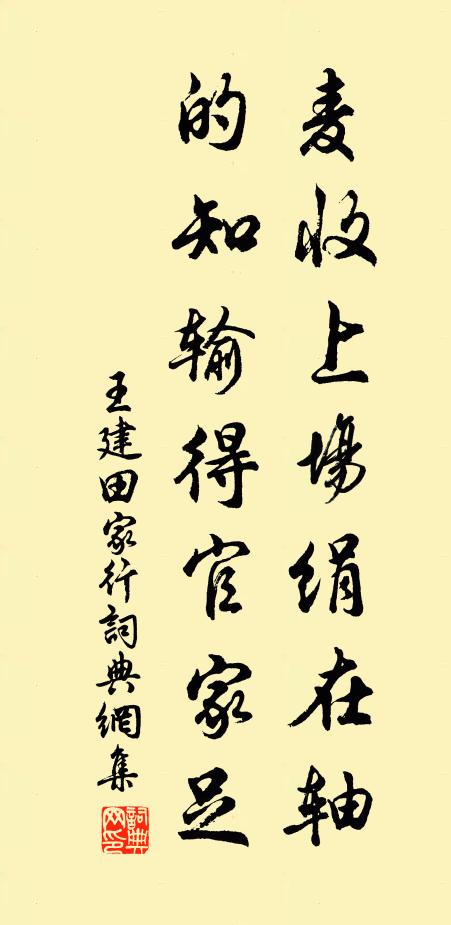 麦收上場絹在軸
的知输得官家足
王建田家行詞典網集
詞典网印